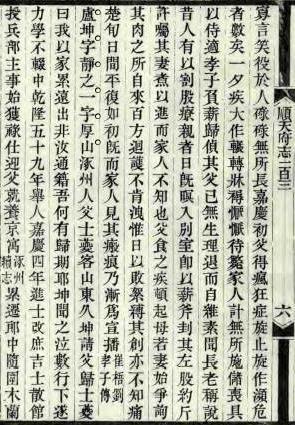 寡言笑役於人碌碌無所長嘉慶初父得瘋狂症旋止旋作瀕危
者數矣一夕疾大作輾轉牀褥懨懨待斃家人計無所施儲喪具
以侍適孝子負薪歸偵其父已無生理退而自維素聞長老稱說
昔人有以割股療親者日旣暝入別室卽以薪斧封其左股約斤
許囑其妻煮以進而家人不知也父食之疾頓起母者妻始爭詢
其肉之所自來百方迴護不肯洩惟日以敗絮縛其創亦不知痛
楚旬日間平復如初旣而家人見其瘢痕乃漸爲宣播崔梧劉孝子傳
盧坤字靜之一字厚山涿州人父士夔客山東久坤請父歸士夔
曰我以家累遠出非汝通籍吾何有歸期耶坤聞之泣數行下遂
力學不輟中乾隆五十九年舉人嘉慶四年進士改庶吉士散館
授兵部主事始獲祿仕迎父就養京寓涿州續志累遷郎中隨圍木蘭
順天府志一百三
六